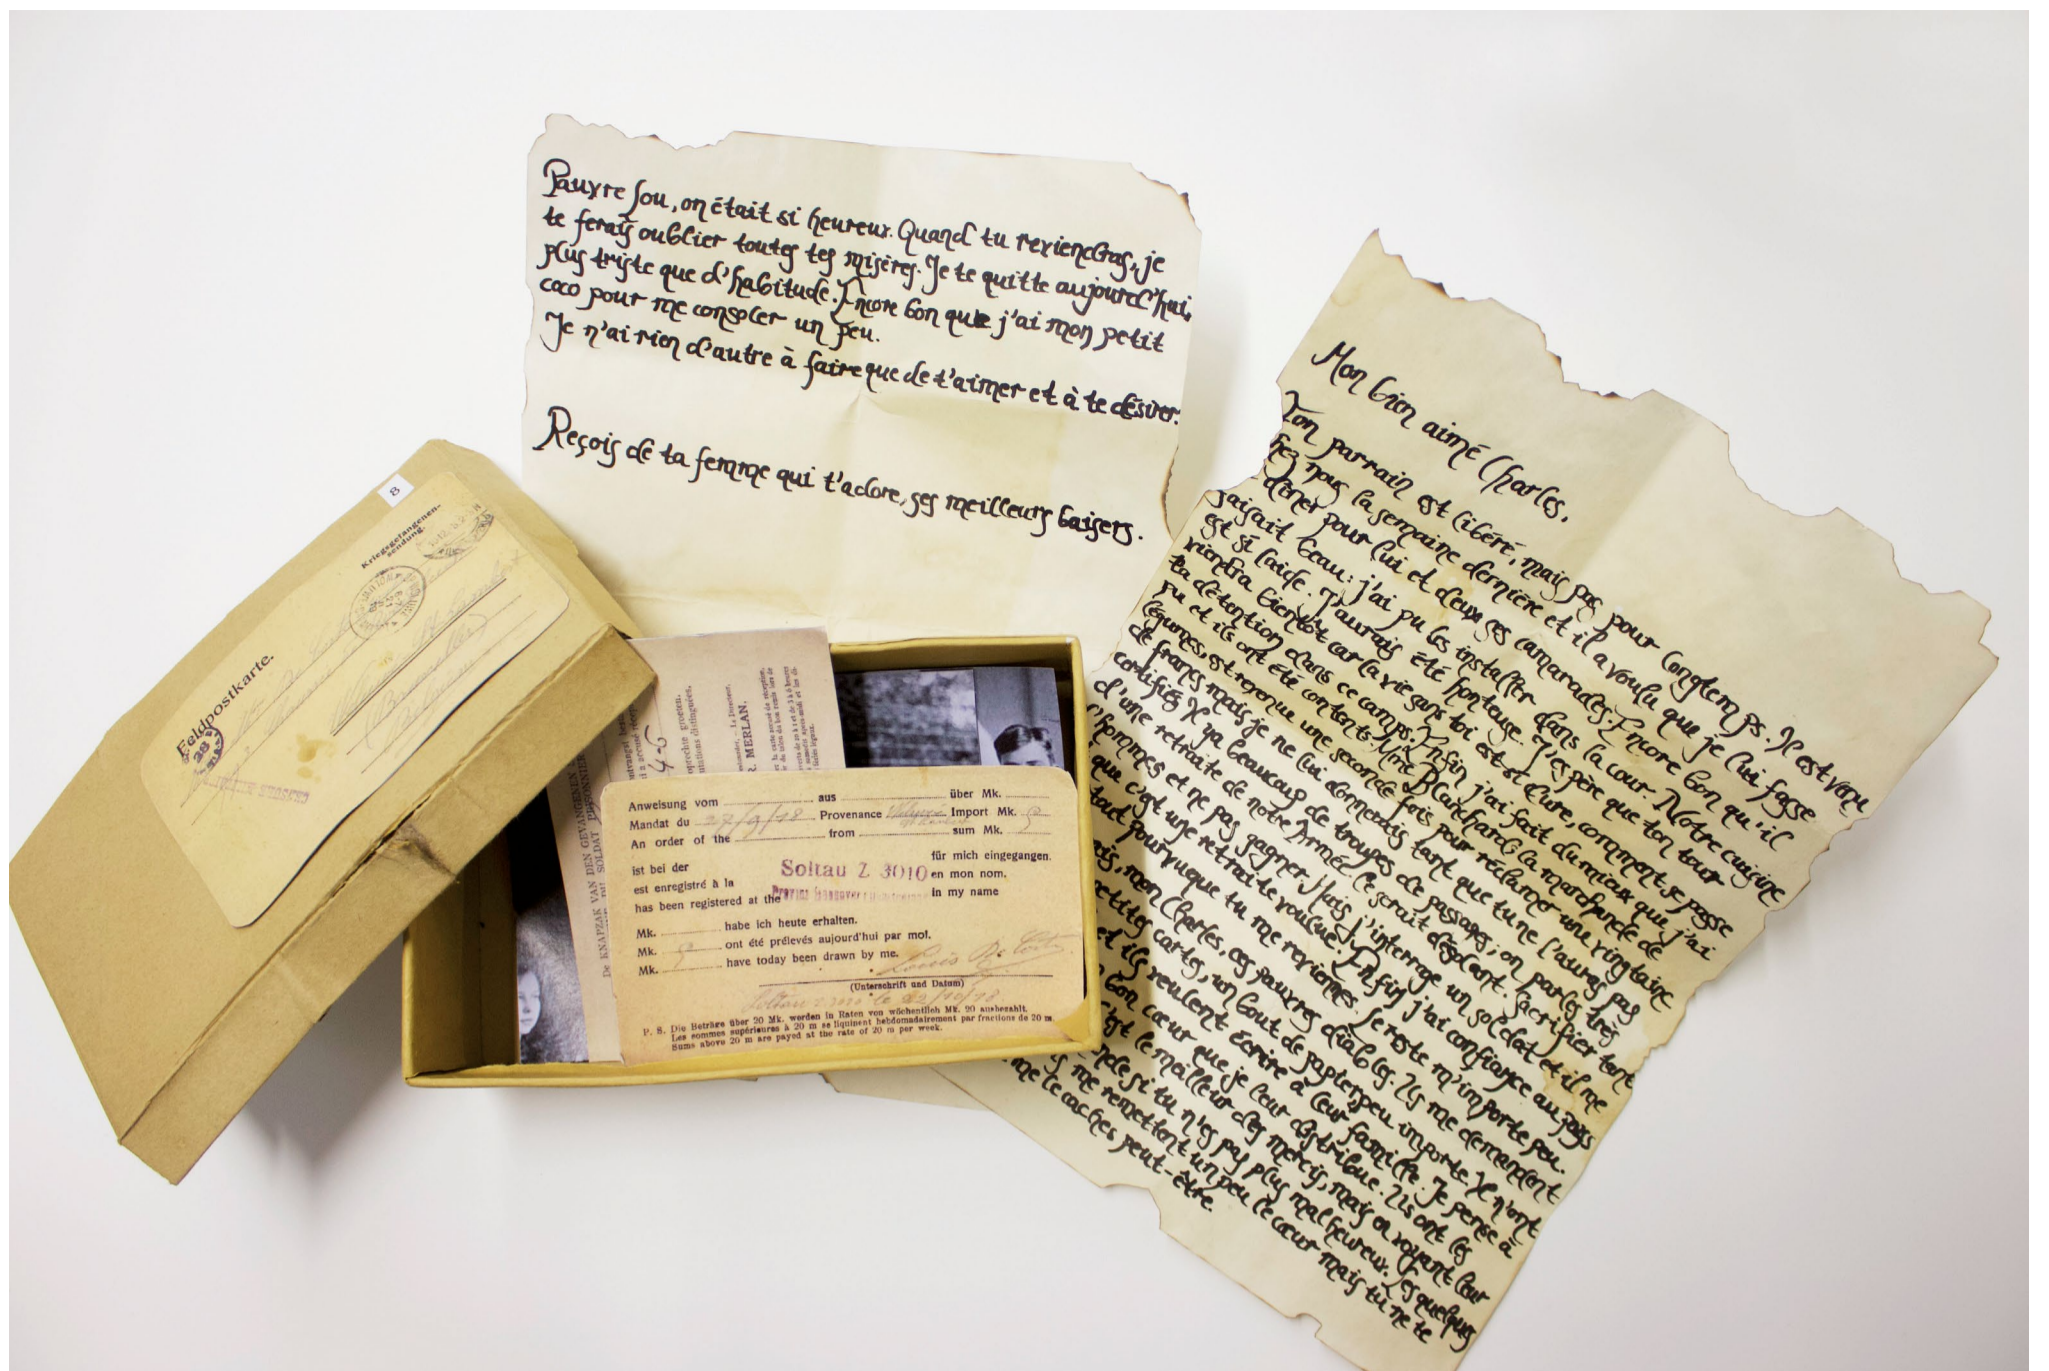 Pauvre fou, on était si heureux. Quand tu reviendras, je
te ferais oublier toutes tes misères. Je te quitte aujourd'hui,
plus triste que d'habitude. Encore bon que j'ai mon petit
coco pour me consoler un peu.
Je n'ai rien d'autre à faire que de t'aimer et à te désirer.
Reçois de ta femme qui t'adore, ses meilleurs baisers.
Mon bien aimé Charles,
Ton parrain est libéré, mais pas pour longtemps. Il est venu
chez nous la semaine dernière et il a voulu que je lui fasse
dîner pour lui et deux ses camarades. Encore bon qu'il
faisait beau : j'ai pu les installer dans la cour. Notre cuisine
est si laide. J'aurais été honteuse. J'espère que ton tour
viendra bientôt car la vie sans toi est si dure, comment se passe
ta détention dans ce camps. Enfin j'ai fait du mieux que j'ai
pu et ils ont été contents. Mme Blanchard, la marchande de
légumes, est revenue une seconde fois pour réclamer une vingtaine
de francs mais je ne lui donnerais tant que tu ne l'auras pas
certifié. Il y a beaucoup de troupes de passages, on parles très
d'une retraite de notre Armée. Ce serait désolant. Sacrifier tant
d'hommes et ne pas gagner. Mais j'interroge un soldat et il me
que c'est une retraite voulue. Enfin j'ai confiance au pays
tout pourvu que tu me reviennes. Le reste m'importe peu.
mon Charles, ces pauvres diables. Ils me demandent
petites cartes, un bout de papier peu importe. Ils n'ont
et ils veulent écrire à leur famille. Je pense à
bon cœur que je leur distribue. Ils ont les
c'est le meilleur des mercis, mais en voyant leur
si tu n'es pas plus malheureux. Les quelques
me remettent un peu le cœur mais tu ne te
me le caches peut-être.
8
Kriegsgefangenen-
sendung.
Feldpostkarte.
28
De KNAPZAK VAN DEN GEVANGENEN
SOLDAT PRISONNIER
R. MERLAN.
Anweisung vom aus über Mk.
Mandat du 27/9/18 Provenance Import Mk. 5
An order of the from sum Mk.
ist bei der für mich eingegangen.
est enregistré à la Soltau Z 3010 en mon nom.
has been registered at the in my name
Mk. habe ich heute erhalten.
Mk. 5 ont été prélevés aujourd'hui par moi.
Mk. have today been drawn by me.
Louis
(Unterschrift und Datum)
Soltau z 3010 le 22/10/18
P. S. Die Beträge über 20 Mk. werden in Raten von wöchentlich Mk. 20 ausbezahlt.
Les sommes supérieures à 20 m se liquinent hebdomadairement par fractions de 20 m.
Sums above 20 m are payed at the rate of 20 m per week.